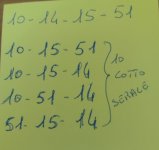 10-14-15-51
10-15-51
10-15-14
10-51-14
51-15-14
10
LOTTO
SERALE